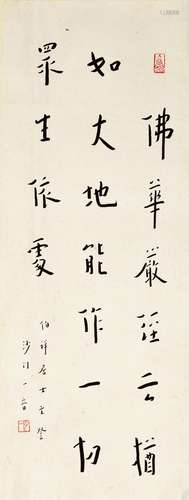 佛華嚴經云猶
如大地能作一切
眾生依處
伯祥居士玄鑒
沙門一音